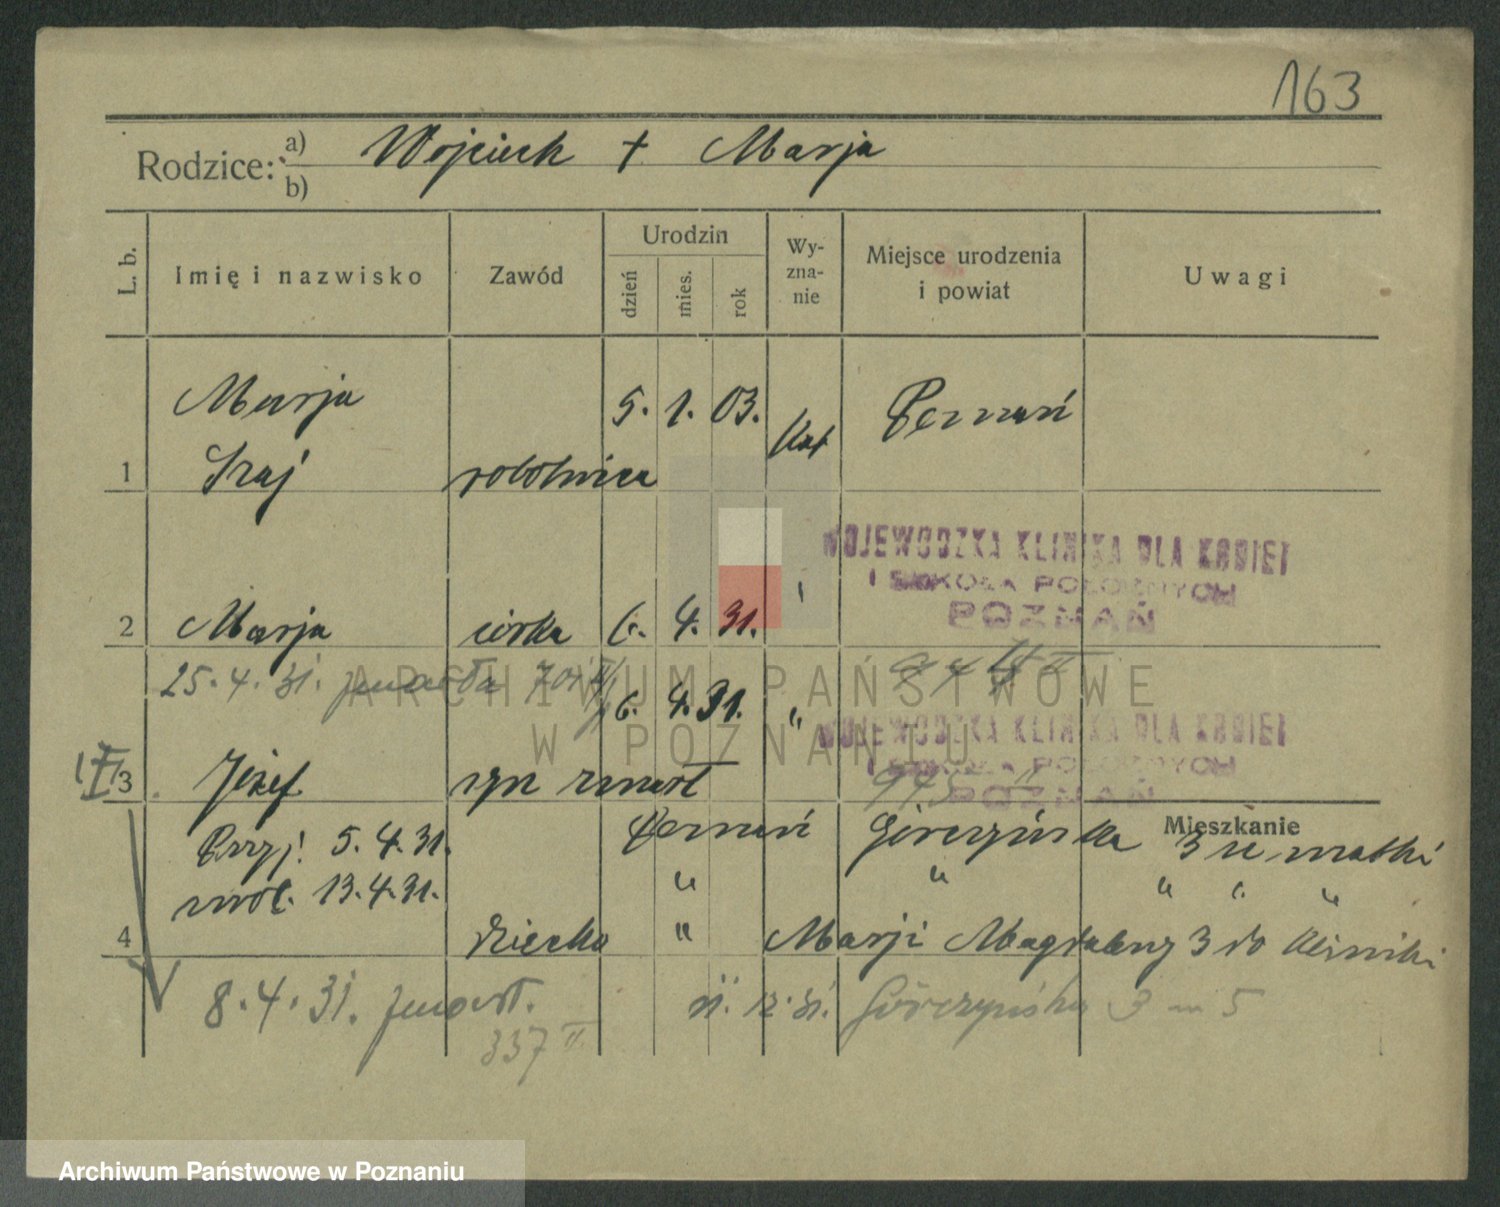 163
Rodzice: a) Wojciech + Marja
b)
L. b. Imię i nazwisko Zawód Urodzin dzień mies. rok Wy-zna-nie Miejsce urodzenia i powiat Uwagi
Marja 5. 1. 03. kat Poznań
1 robotnica
WOJEWODZKA KLINIKA DLA KOBIET
I SZKOŁA POŁOŻNYCH
POZNAŃ
2 Marja córka 6. 4. 31. "
25. 4. 31. zmarła
6. 4. 31. "
WOJEWODZKA KLINIKA DLA KOBIET
I SZKOŁA POŁOŻNYCH
POZNAŃ
3 Józef syn zmarł
Mieszkanie
Przyj. 5. 4. 31. Poznań Górczyńska 3 u matki
wrot. 13. 4. 31. " " " " "
4 dziecko " Marji Magdaleny 3 do kliniki
8. 4. 31. zmarł. 12. 31. Górczyńska 3 m 5
337 II
ARCHIWUM PAŃSTWOWE
W POZNANIU
Archiwum Państwowe w Poznaniu